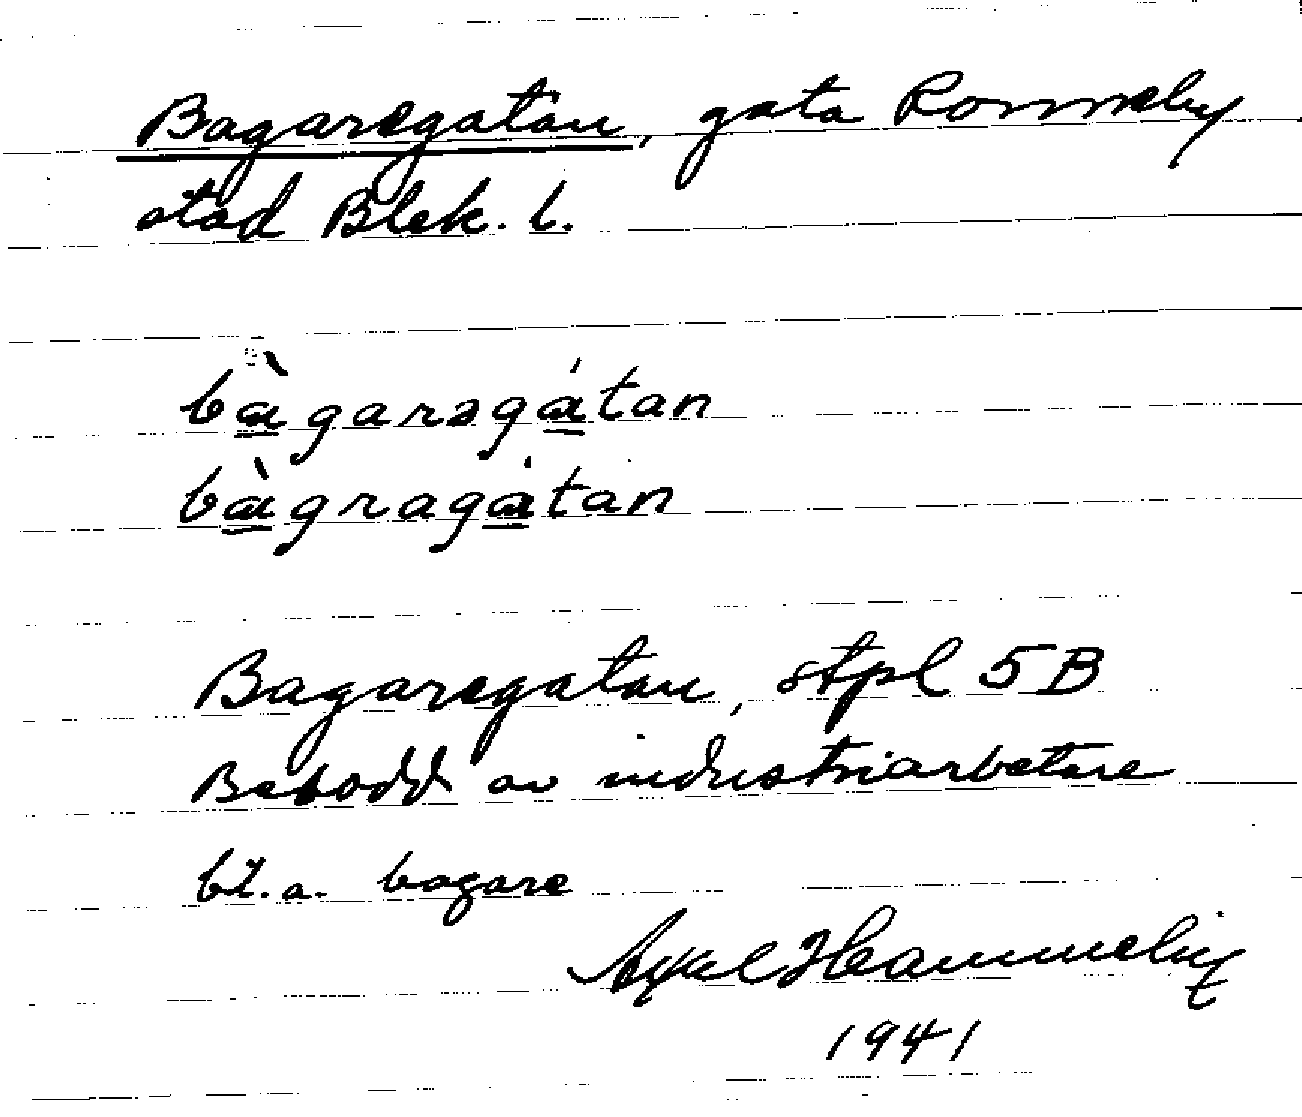 Bagaregatan, gata Ronneby
stad Blek. l.
bàgarəgátan
bàgragátan
Bagaregatan, stpl 5B
Bebodd av industriarbetare
bl.a. bagare
Axel Hammelin
1941